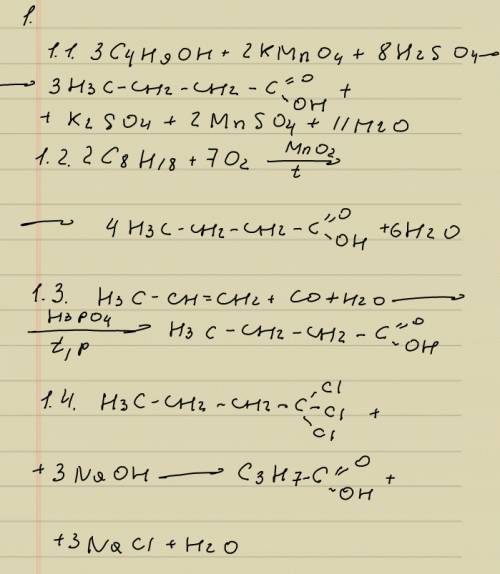 1.
1.1. 3C4H9OH + 2KMnO4 + 8H2SO4 —
→ 3H3C-CH2-CH2-C=O OH +
+ K2SO4 + 2MnSO4 + 11H2O
1.2. 2C8H18 + 7O2 MnO2 t
— 4H3C-CH2-CH2-C=O OH +6H2O
1.3. H3C-CH=CH2 + CO + H2O —
H3PO4 t,p → H3C-CH2-CH2-C=O OH
1.4. H3C-CH2-CH2-C Cl Cl Cl +
+ 3NaOH → C3H7-C=O OH +
+3NaCl + H2O